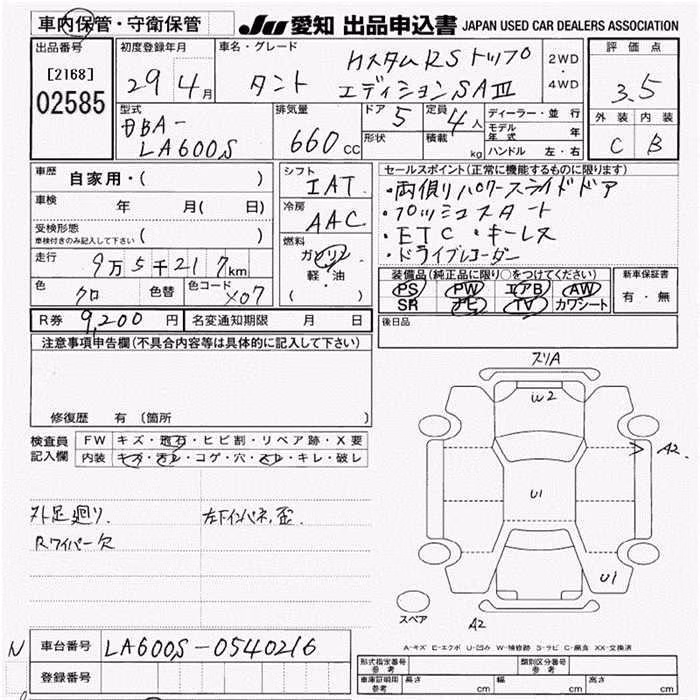 車内保管・守衛保管
JU 愛知 出品申込書 JAPAN USED CAR DEALERS ASSOCIATION
出品番号 初度登録年月 車名・グレード カスタムRSトップ 2WD・4WD 評価点
[2168] 29 4月 タント エディションSAⅢ 3.5
02585
型式 排気量 ドア 5 定員 4人 ディーラー・並行 外装 内装
DBA- モデル年式 年
LA600S 660CC 形状 積載 kg ハンドル 左・右 C B
車歴 自家用・( ) シフト IAT セールスポイント(正常に機能するものに限り)
車検 年 月( 日) 冷房 AAC ・両側パワースライドドア
受検形態 ・プッシュスタート
車検付きのみ記入して下さい ( ) 燃料 ・ETC ・キーレス
走行 9万5千217km ガソリン ・ドライブレコーダー
軽・油 装備品(純正品に限り○をつけてください) 新車保証書
色 クロ 色替 色コード X07 ( ・ ) PS PW エアB AW 有・無
SR ナビ TV カワシート
R券 9,200 円 名変通知期限 月 日 後日品
注意事項申告欄(不具合内容等は具体的に記入して下さい)
修復歴 有(箇所
検査員 FW キズ・飛石・ヒビ割・リペア跡・X要
記入欄 内装 キズ・汚レ・コゲ・穴・スレ・キレ・破レ
スリA
W2
A2
U1
U1
外足廻り. 左下インパネ,歪.
Rワイパー欠
スペア
A2
A-キズ E-エクボ U-凹み W-補修跡 S-サビ C-腐食 XX-交換済
N 車台番号 LA600S-0540216
登録番号
形式指定番号 参考 類別区分番号 参考
車庫証明用 参考 長さ cm 幅 cm 高さ cm